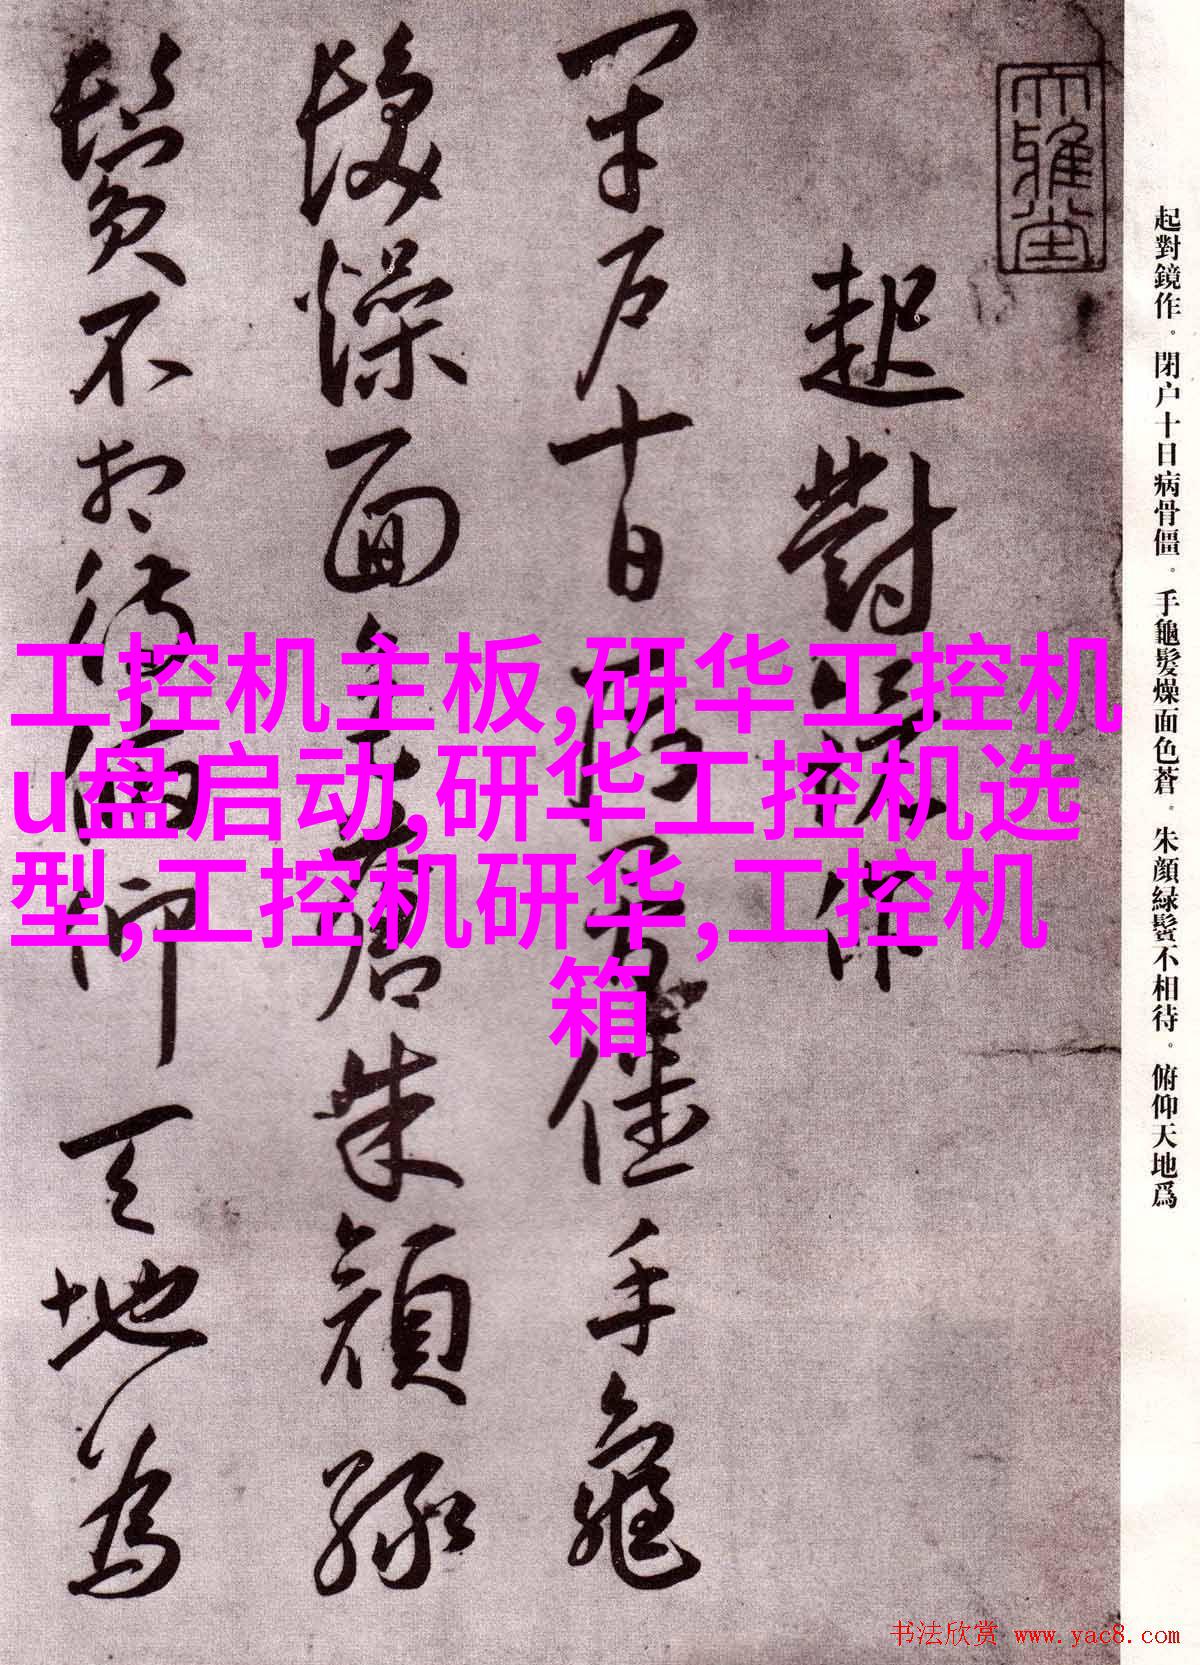 大雅堂
起對鏡作
閉户十日病骨僵手龜
髮燥面色蒼朱顔緑
鬢不相待俯仰天地為
起對鏡作。閉户十日病骨僵。手龜髮燥面色蒼。朱顔緑鬢不相待。俯仰天地爲
工控机主板,研华工控机
u盘启动,研华工控机选
型,工控机研华,工控机
箱
书法欣赏 www.yac8.com